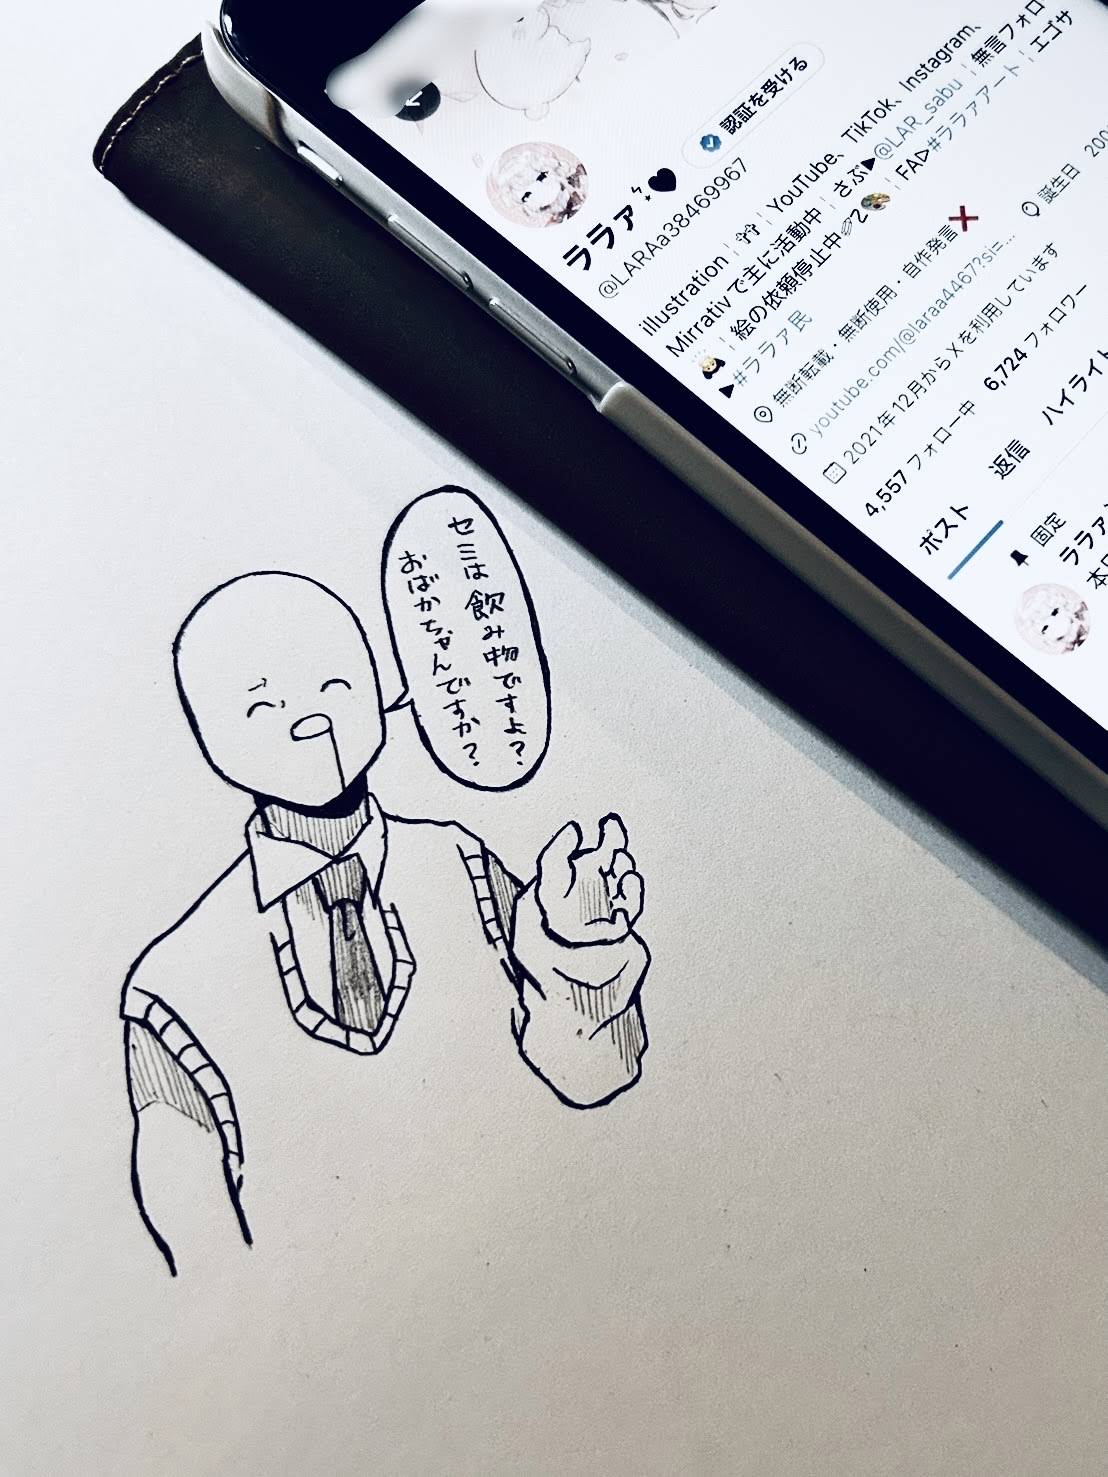 認証を受ける
ララァ
@LARAa38469967
illustration¦ ¦YouTube、TikTok、Instagram、
Mirrativで主に活動中¦さぶ▶@LAR_sabu¦無言フォロ
¦絵の依頼停止中 ¦FA▷#ララアアート¦エゴサ
▶#ララァ民
無断転載・無断使用・自作発言❌
youtube.com/@laraa4467?si=... 誕生日 200
2021年12月からXを利用しています
4,557 フォロー中 6,724 フォロワー
ポスト 返信 ハイライト
固定
ララァ
本日
セミは飲み物ですよ?
おばかちゃんですか?